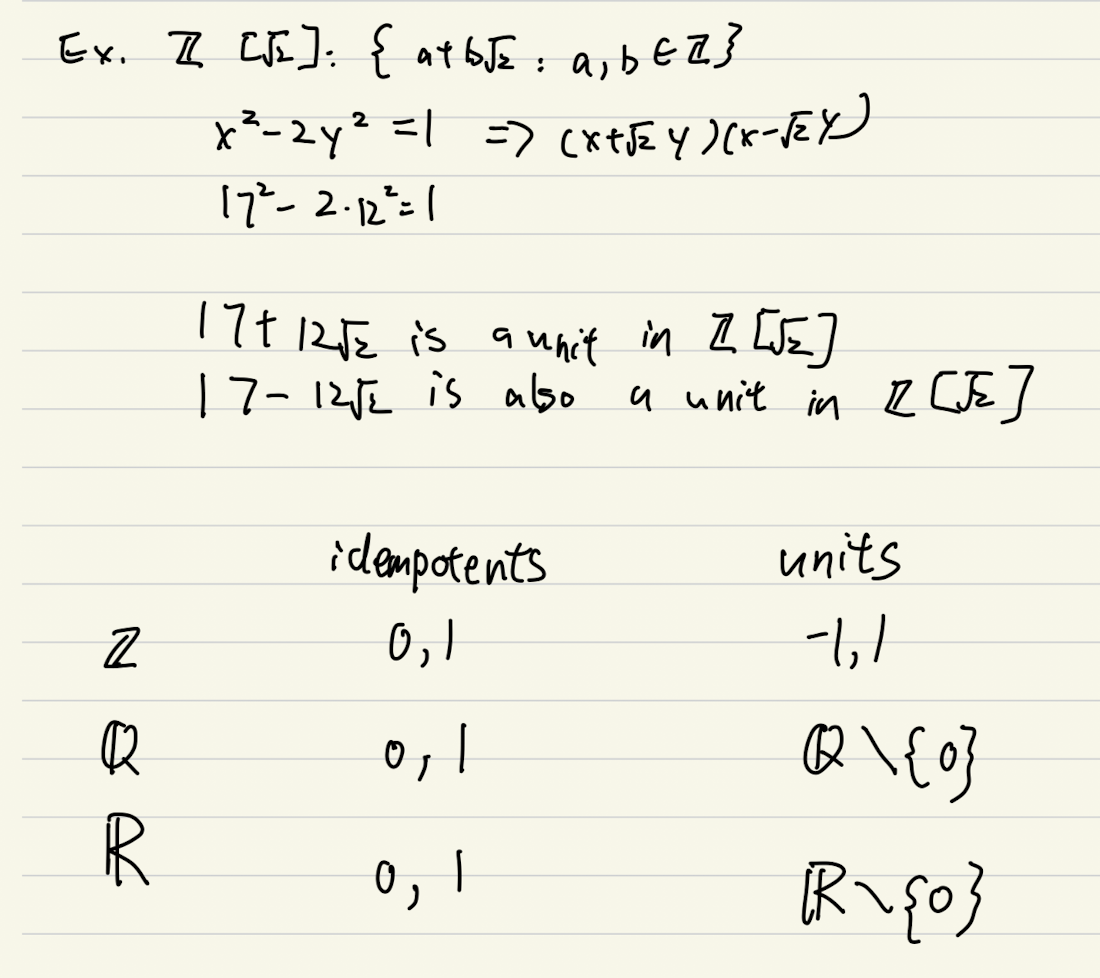 Ex. ℤ [√2]: { a+b√2 : a, b ∈ ℤ}
x² - 2y² = 1 => (x+√2 y)(x-√2 y)
17² - 2·12² = 1
17 + 12√2 is a unit in ℤ [√2]
17 - 12√2 is also a unit in ℤ [√2]
idempotents units
ℤ 0, 1 -1, 1
ℚ 0, 1 ℚ \ {0}
ℝ 0, 1 ℝ \ {0}